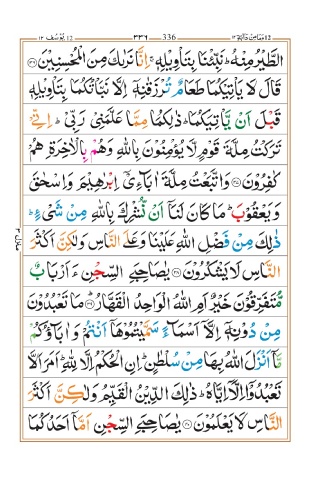 یوسف ۱۲ ۳۳۶ 336 ومامن دآبة ۱۲
الطَّيْرُ مِنْهُ ؕ نَبِّئْنَا بِتَاْوِيْلِهٖ ۚ اِنَّا نَرٰىكَ مِنَ الْمُحْسِنِيْنَ ﴿۳۶﴾
قَالَ لَا يَاْتِيْكُمَا طَعَامٌ تُرْزَقٰنِهٖۤ اِلَّا نَبَّاْتُكُمَا بِتَاْوِيْلِهٖ
قَبْلَ اَنْ يَّاْتِيَكُمَا ؕ ذٰلِكُمَا مِمَّا عَلَّمَنِيْ رَبِّيْ ؕ اِنِّيْ
تَرَكْتُ مِلَّةَ قَوْمٍ لَّا يُؤْمِنُوْنَ بِاللّٰهِ وَهُمْ بِالْاٰخِرَةِ هُمْ
كٰفِرُوْنَ ﴿۳۷﴾ وَاتَّبَعْتُ مِلَّةَ اٰبَآءِيْۤ اِبْرٰهِيْمَ وَاِسْحٰقَ
وَيَعْقُوْبَ ؕ مَا كَانَ لَنَاۤ اَنْ نُّشْرِكَ بِاللّٰهِ مِنْ شَيْءٍ ؕ
ذٰلِكَ مِنْ فَضْلِ اللّٰهِ عَلَيْنَا وَعَلَى النَّاسِ وَلٰكِنَّ اَكْثَرَ
النَّاسِ لَا يَشْكُرُوْنَ ﴿۳۸﴾ يٰصَاحِبَيِ السِّجْنِ ءَاَرْبَابٌ
مُّتَفَرِّقُوْنَ خَيْرٌ اَمِ اللّٰهُ الْوَاحِدُ الْقَهَّارُ ﴿۳۹﴾ مَا تَعْبُدُوْنَ
مِنْ دُوْنِهٖۤ اِلَّاۤ اَسْمَآءً سَمَّيْتُمُوْهَاۤ اَنْتُمْ وَاٰبَآؤُكُمْ
مَّاۤ اَنْزَلَ اللّٰهُ بِهَا مِنْ سُلْطٰنٍ ؕ اِنِ الْحُكْمُ اِلَّا لِلّٰهِ ؕ اَمَرَ اَلَّا
تَعْبُدُوْۤا اِلَّاۤ اِيَّاهُ ؕ ذٰلِكَ الدِّيْنُ الْقَيِّمُ وَلٰكِنَّ اَكْثَرَ
النَّاسِ لَا يَعْلَمُوْنَ ﴿۴۰﴾ يٰصَاحِبَيِ السِّجْنِ اَمَّاۤ اَحَدُكُمَا
منزل ۳